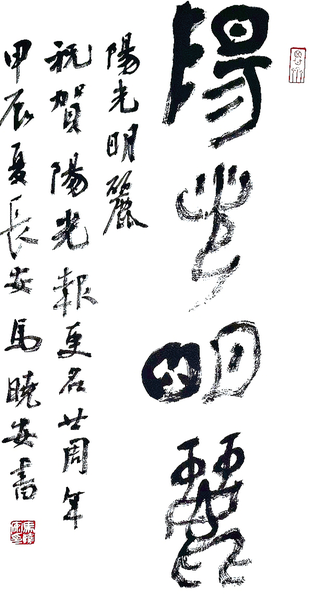 陽光明麗
陽光明麗
祝賀陽光報更名廿周年
甲辰夏長安馬曉安書